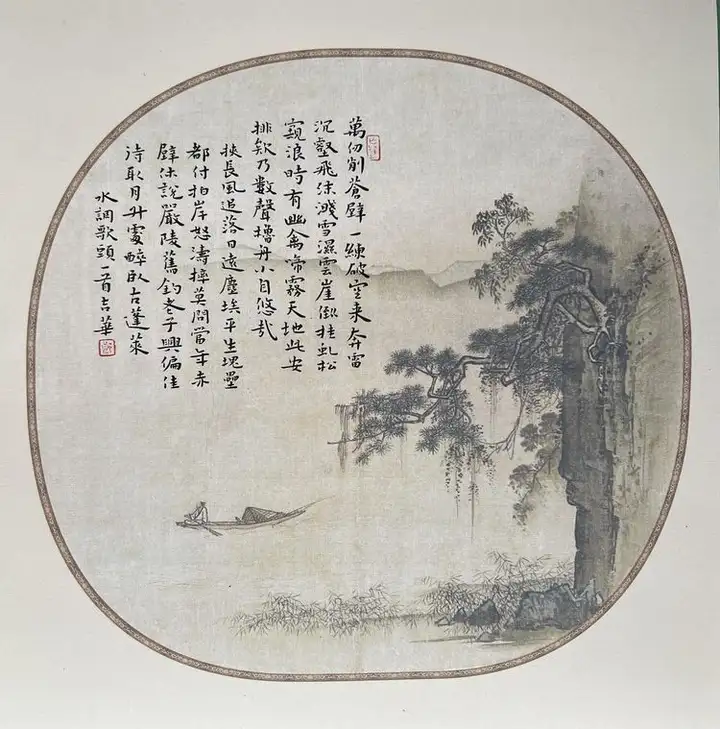 萬仞削蒼壁一練破空来奔雷
沉壑飛沫濺雪濕雲崖倒挂虬松
窺浪時有幽禽啼霧天地此安
排欸乃數聲櫓舟小自悠哉
挾長風追落日遠塵埃平生塊壘
都付拍岸怒濤摔莫問當年赤
壁休說嚴陵舊釣老子興偏佳
待取月升處醉臥古蓬萊
水調歌頭一首吉華